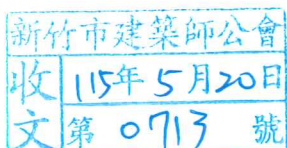 新竹市建築師公會
收文
115年5月20日
第0713號